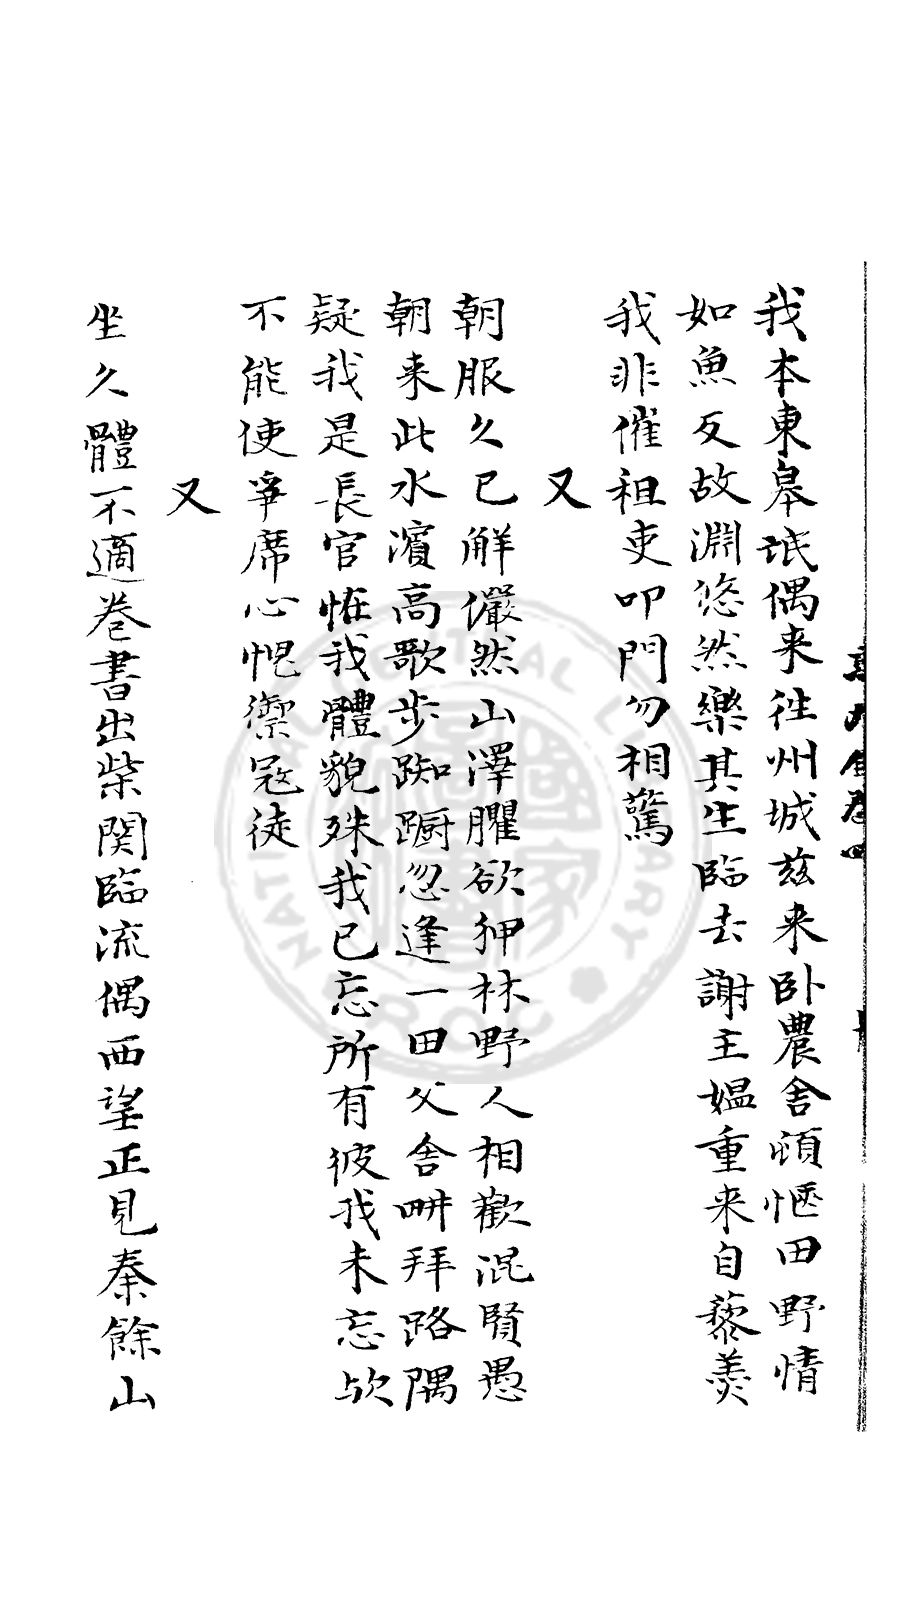 我本東皋氓偶来往州城茲来卧農舍頓愜田野情
如魚反故淵悠然樂其生臨去謝主媼重来自藜羮
我非催租吏叩門勿相驚
又
朝服久已解儼然山澤臞欲狎林野人相歡混賢愚
朝来此水濱高歌步踟蹰忽逢一田父舍畊拜路隅
疑我是長官恠我體貌殊我已忘所有彼我未忘欤
不能使爭席心愧禦冦徒
又
坐久體不適卷書出柴関臨流偶西望正見秦餘山
NATIONAL CENTRAL LIBRARY R.O.C.
國家圖書館